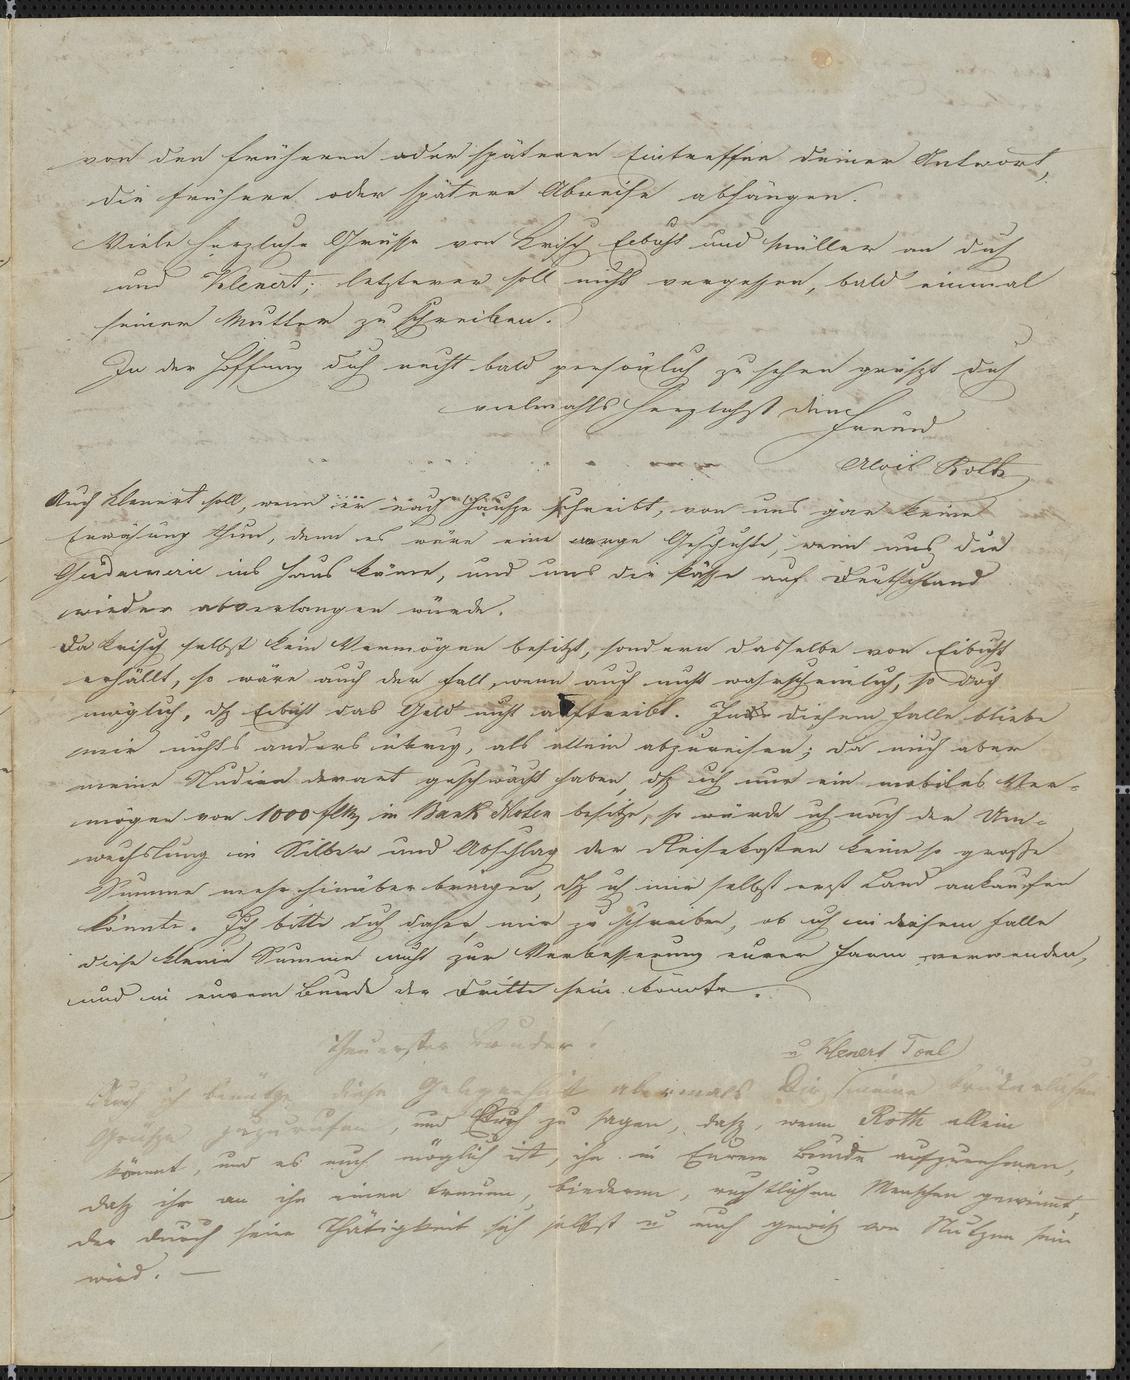 von den früheren oder späteren Eintreffen deiner Antwort,
die frühere oder spätere Abreise abhängen.
Viele herzliche Grüsse von Krisch Eibuscht und Müller an dich
und Klenert; letzterer soll nicht vergessen, bald einmal
seiner Mutter zu schreiben.
In der Hoffnung dich recht bald persönlich zu sehen grüszt dich
vielmahls herzlichst dein
Freund
Alois Roth
Auch Klenert soll, wenn er nach Hausze schreibt, von uns gar keine
Erwähung thun, denn es wäre eine arge Geschichte, wenn uns die
ins Haus käme, und uns die Pässe auf Deutschland
wieder abverlangen würde.
Da Krisch selbst kein Vermögen besitzt, sondern dasselbe von Eibuscht
erhällt, so wäre auch der Fall, wenn auch nicht wahrscheinlich, so doch
möglich, dsz Eibuscht das Geld nicht auftreibt. In diesem Falle bliebe
mir nichts anders übrig, als allein abzureisen; da mich aber
meine Studien derart geschwächt haben, dsz ich nur ein mobiles Ver-
mögen von 1000 fl in Bank Noten besitze, so würde ich nach der Um-
wechslung in Silber und Abschlag der Reisekosten keine so grosse
Summe mehr hinüber bringen, dsz ich mir selbst erst Land ankaufen
könnte. Ich bitte dich daher, mir zu schreiben, ob ich in diesem Falle
diese kleine Summe nicht zur Verbesserung eurer Farm verwenden,
und in eurem Bunde der Dritte sein könnte.
Theuerster Bruder!
u Klenert Toul
Auch ich benütze diese Gelegenheit abermals Dir meine brüderlichen
Grüsze zuzurufen, und Euch zu sagen, dasz, wenn Roth allein
kömmt, und es euch möglich ist, ihn in Eurem Bunde aufzunehmen,
dasz ihr an ihm einen treuen, biederen, rechtlichen Menschen gewinnt,
der durch seine Thätigkeit sich selbst u euch gewisz von Nutzen sein
wird. —